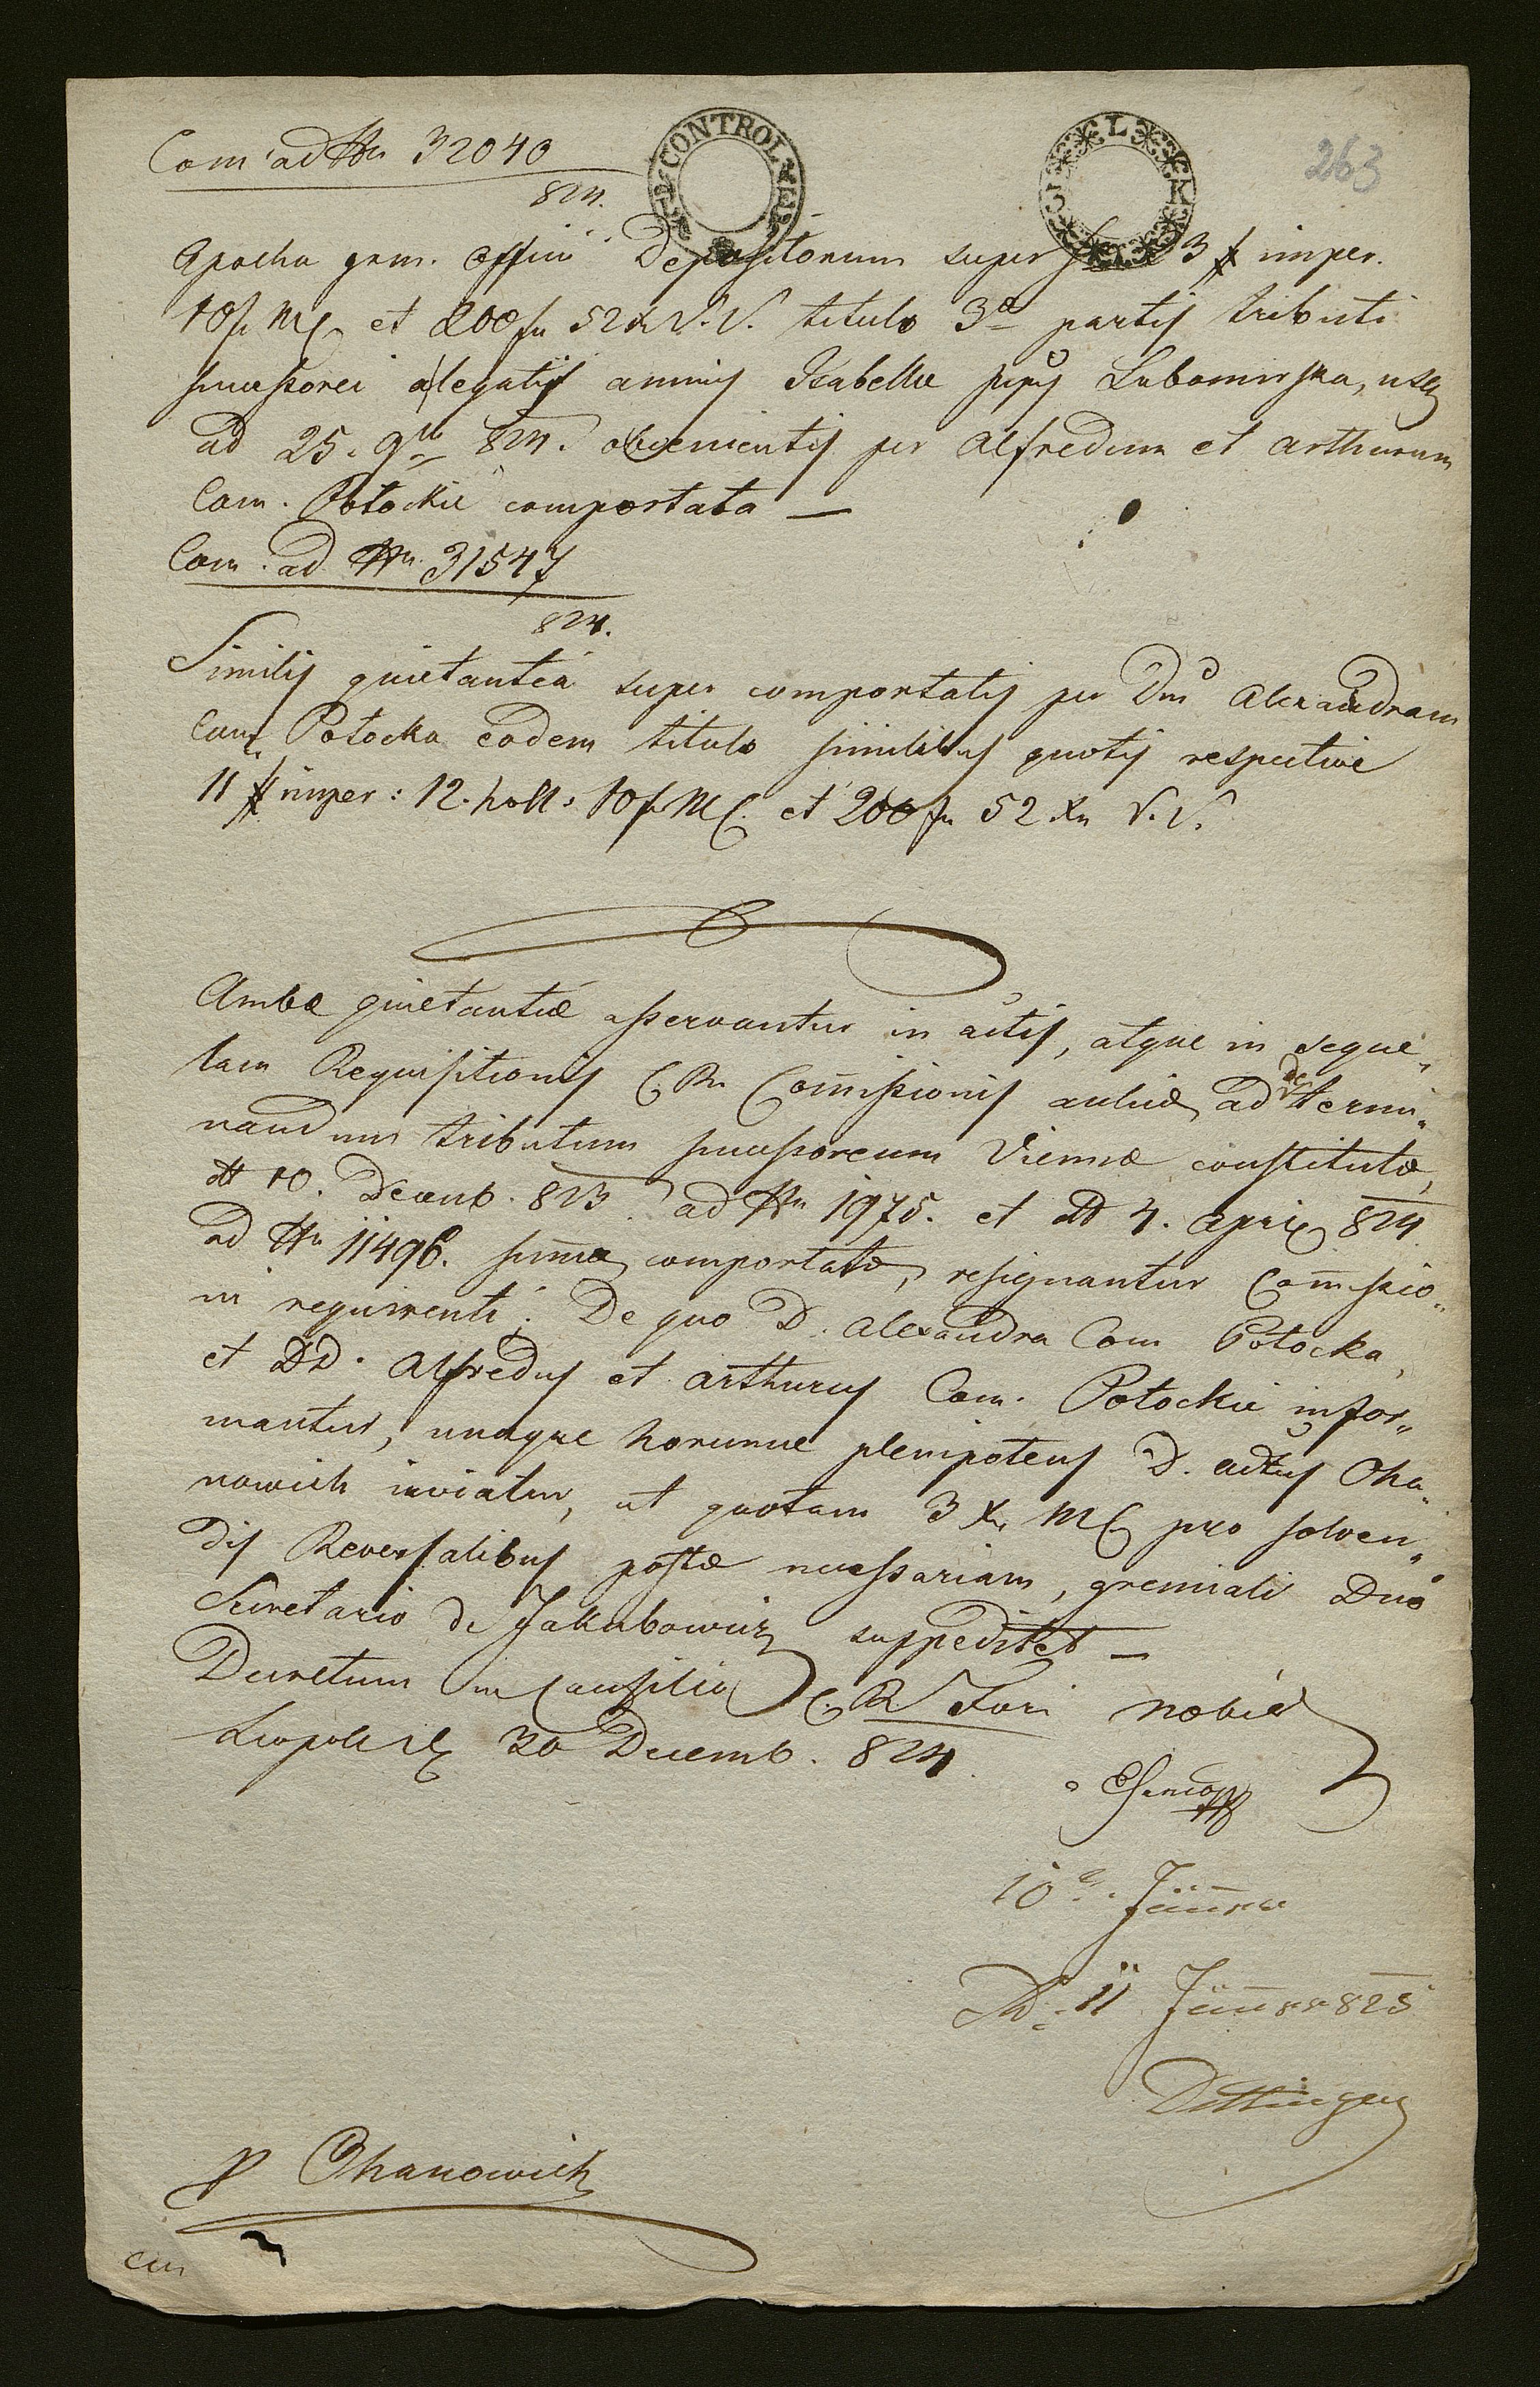 Com: ad Nn 32040
824.
CONTROL
L K
263
Apocha grem. officii Depositorum super 23 # imper.
10 f MC et 200 fr 52 Xr V.V. titulo 3æ partis tributi
successorei a legatis annuis Isabellæ Lubomirska, usq
ad 25. 9br 824. obvenientis per Alfredum et Arthurum
Com. Potockie comportata —
Com. ad Nn. 31547
824.
Similis quietantia super comportatis per Dm Alexandram
Com Potocka eodem titulo similibus quotis respective
11 # imper: 12. holl: 10 f MC. et 200 fr 52 Xr V.V.
Ambæ quietantiæ asservantur in actis, atque in seque„
lam Requisitionis C. R. Com̅issionis aulicæ ad determi„
nandum tributum successoreum Viennæ constitutæ,
dt 10. Decemb. 823. ad Nn 1975. et dt 4. April 824
ad Nn 11496. sum̅æ comportatæ, resignantur Com̅issio„
ni requirenti. De quo D. Alexandra Com Potocka,
et DD. Alfredus et Arthurus Com. Potockie infor„
mantur, unaque horumce plenipotens D. adtus Oha„
nowich inviatur, ut quotam 3 Xr MC pro solven„
dis Reversalibus postæ necessariam, gremiali Dno
Secretario de Jakubowicz suppeditet —
Decretum in Consilio C. R. Fori nobil
Leopoli d 30 Decemb. 824
10 Jänner
11 Jänner 825
Dettinger
p Ohanowich